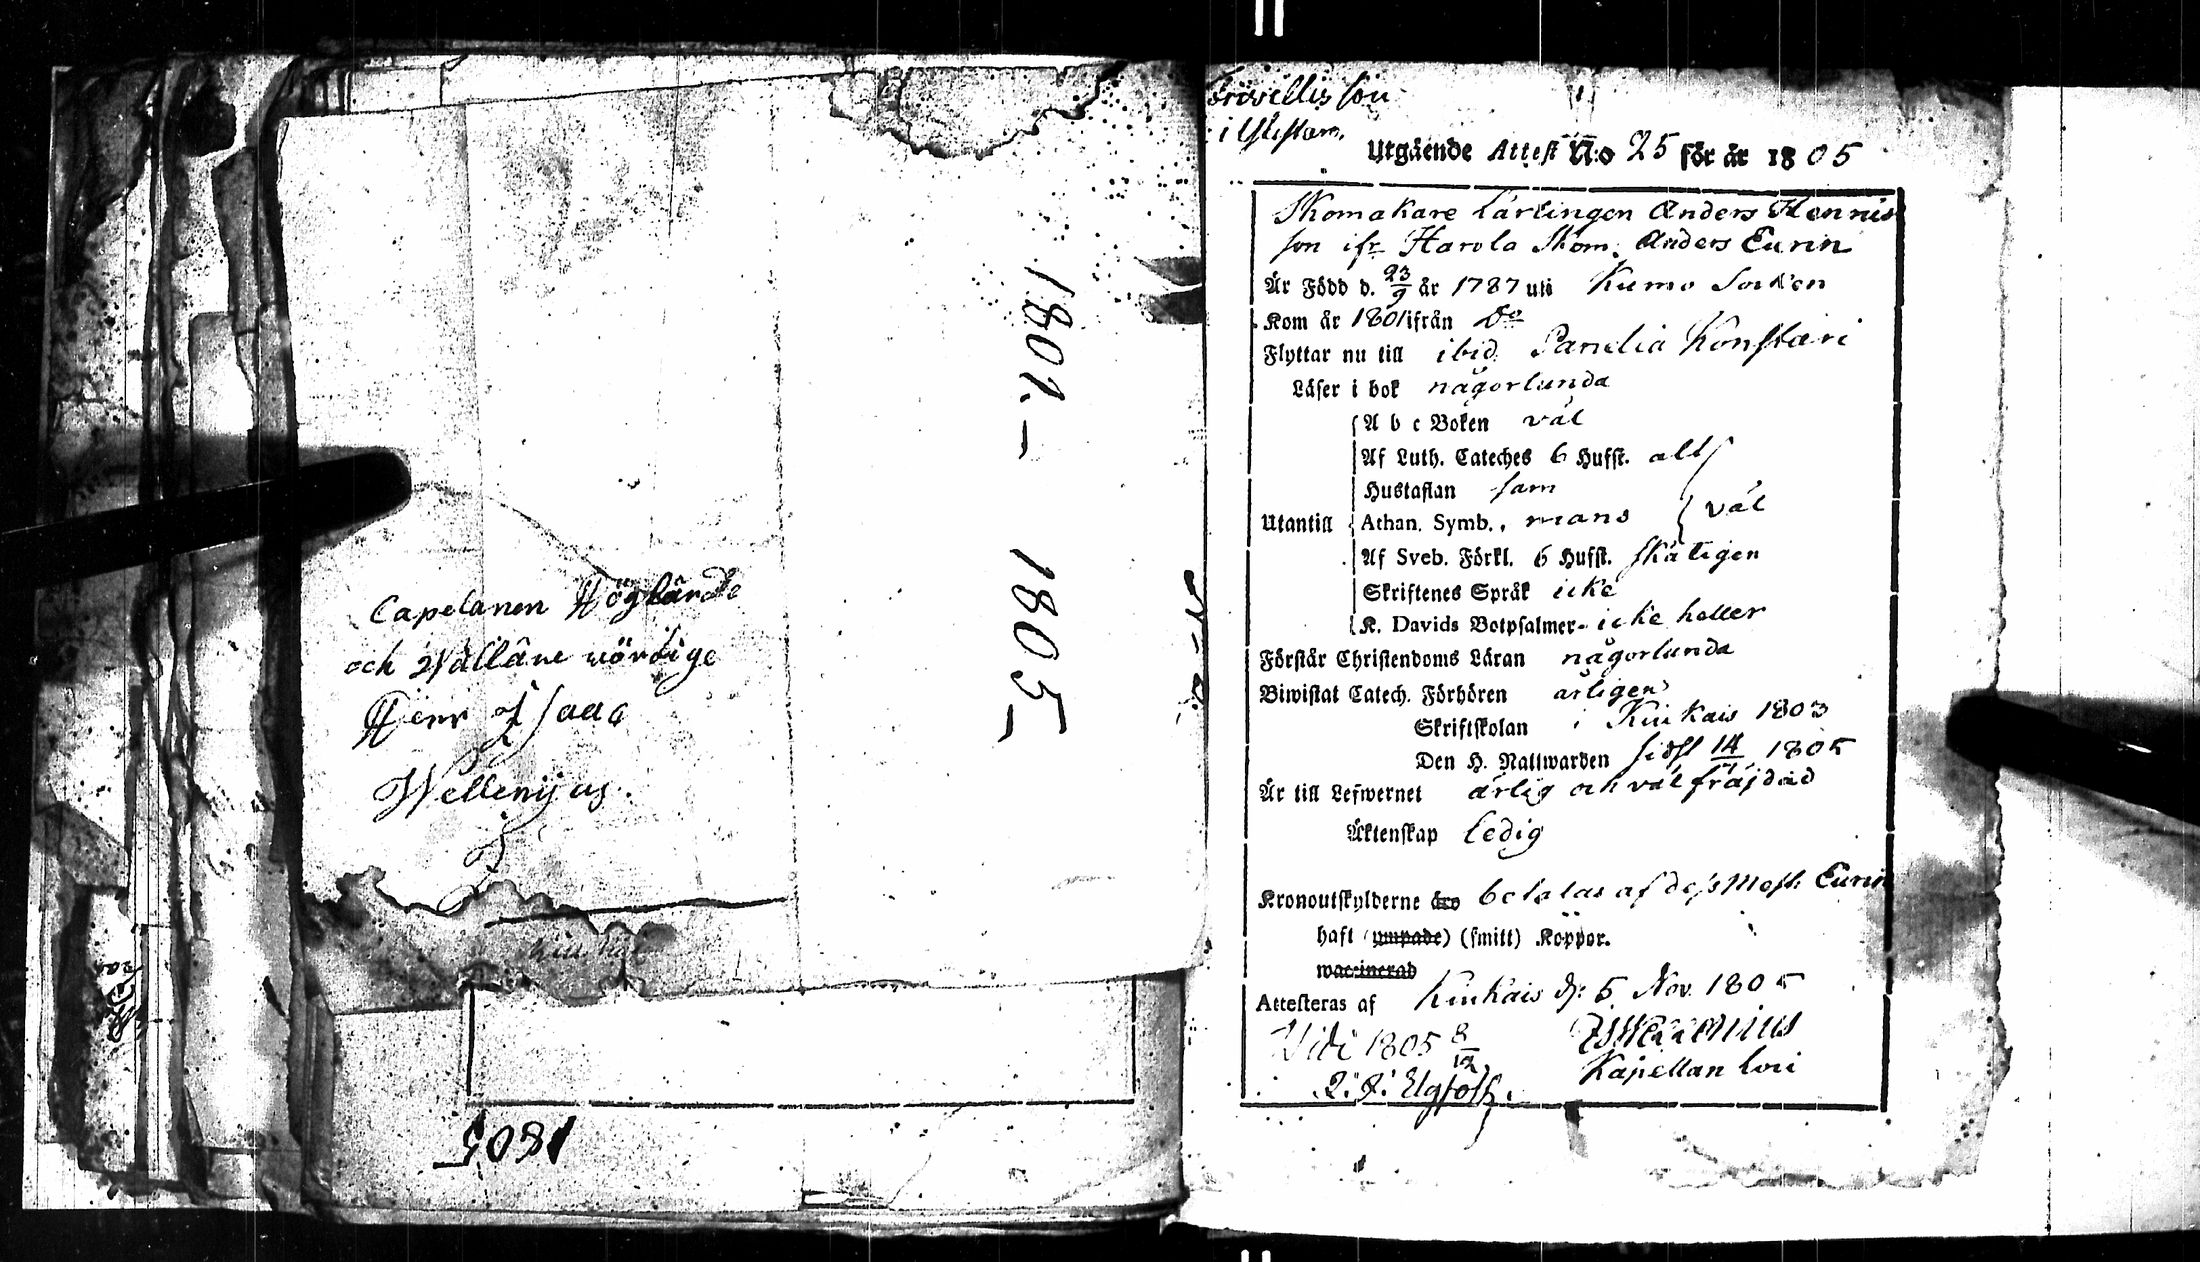 1801.- 1805-
Capelanen Höglärde
och Wällâne wördige
Herr Isaac
Wellenijus.
1805
i
Utgående Attest N:o 25 för år 1805
Skomakare lärlingen Anders Hennis
son ifr. Harola Skom. Anders Eurin
Är Född d. 23/9 år 1787 uti Kumo Socken
Kom år 1801 ifrån Do
Flyttar nu till ibid. Panelia Konstari
Läser i bok någorlunda
A b c Boken väl
Af Luth. Cateches 6 Hufst. allt
Hustaflan sam
Utantill Athan. Symb., mans väl
Af Sveb. Förkl. 6 Hufst. skäligen
Skriftenes Språk icke
K. Davids Botpsalmer- icke heller
Förstår Christendoms Läran någorlunda
Biwistat Catech. Förhören årligen
Skriftskolan i Kiukais 1803
Den H. Nattwarden sidst 14/7 1805
Är till Lefwernet ärlig och väl fräjdad
Äktenskap ledig
Kronoutskylderne äro betalas af dess Mest. Eurin
haft (ympade) (smitt) Koppor.
waccinerad
Attesteras af Kiukais d: 5 Nov. 1805
Vidi 1805 8/12
Kapellan loci